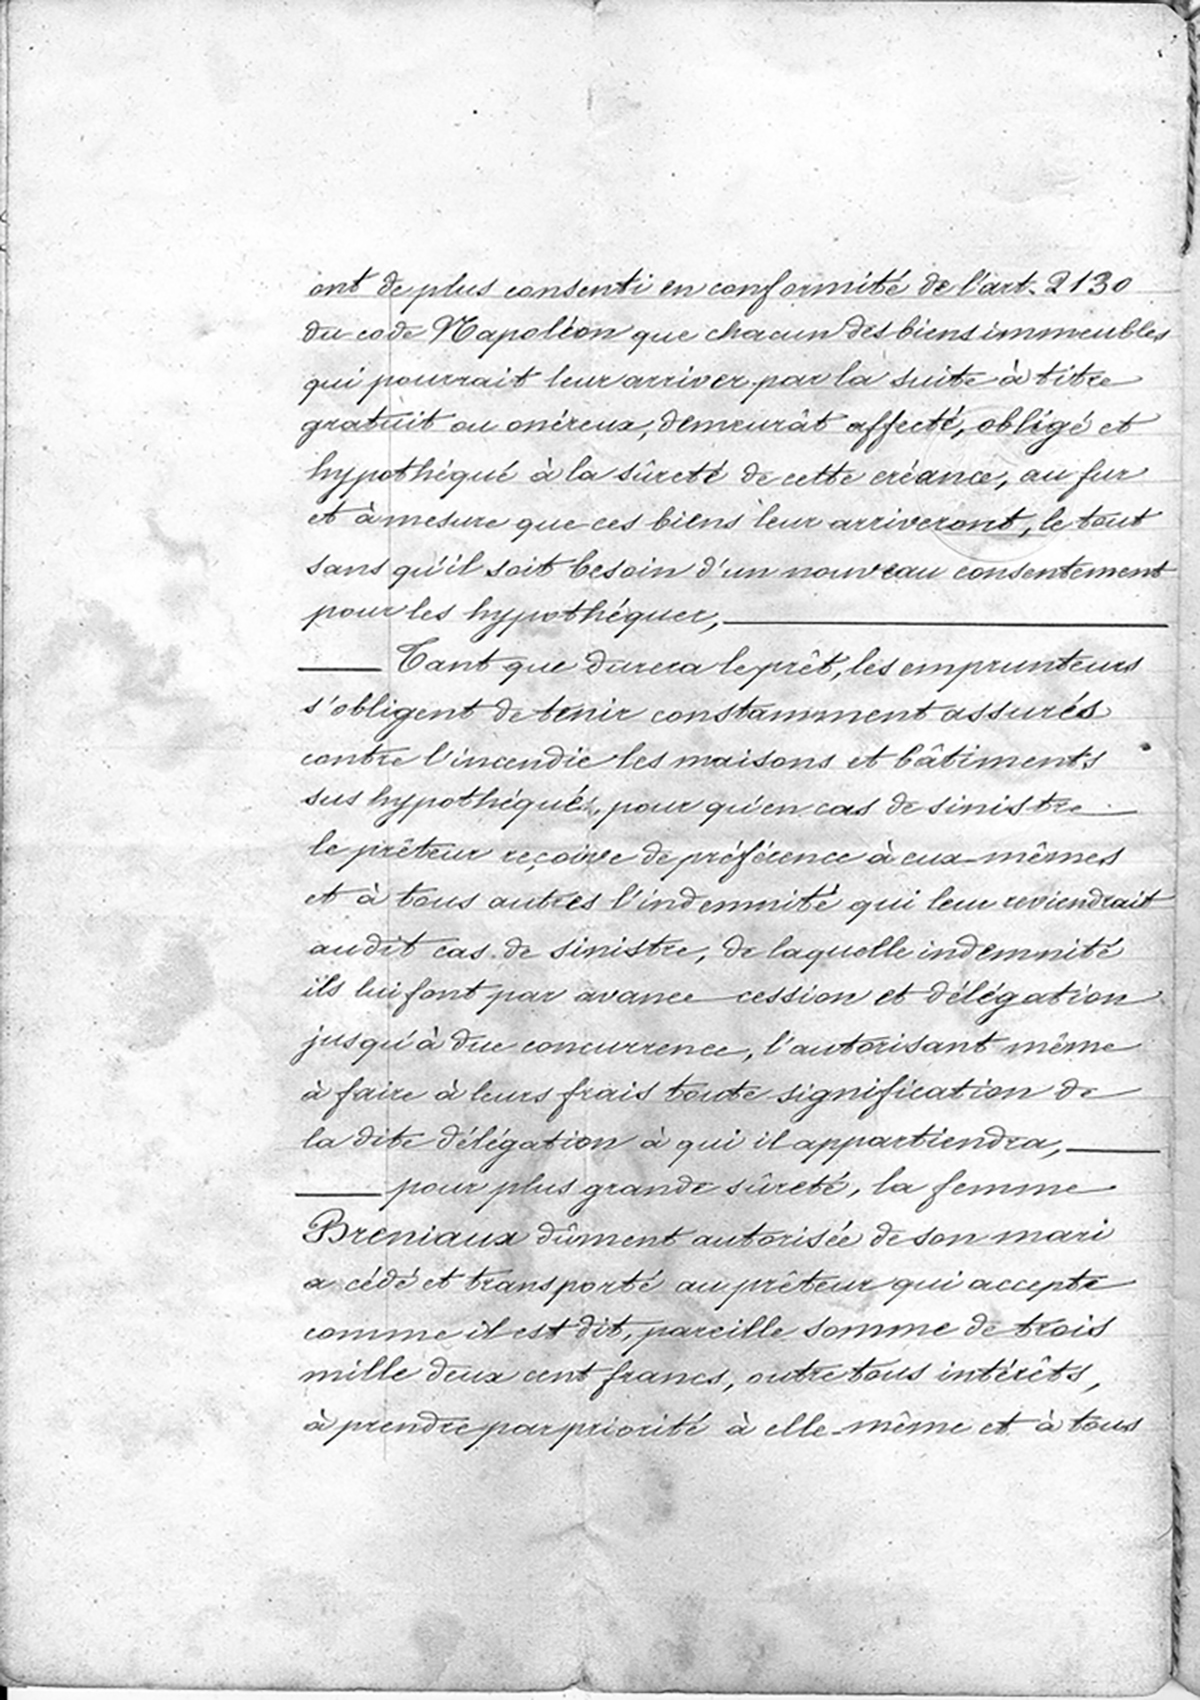 ont de plus consenti en conformité de l'art. 2130
du code Napoléon que chacun des biens immeubles
qui pourrait leur arriver par la suite à titre
gratuit ou onéreux, demeurât affecté, obligé et
hypothéqué à la sûreté de cette créance, au fur
et à mesure que ces biens leur arriveront, le tout
sans qu'il soit besoin d'un nouveau consentement
pour les hypothéquer,
Tant que durera le prêt, les emprunteurs
s'obligent de tenir constamment assurés
contre l'incendie les maisons et bâtiments
sus hypothéqués, pour qu'en cas de sinistre
le prêteur reçoive de préférence à eux-mêmes
et à tous autres l'indemnité qui leur reviendrait
audit cas de sinistre, de laquelle indemnité
ils lui font par avance cession et délégation
jusqu'à due concurrence, l'autorisant même
à faire à leurs frais toute signification de
la dite délégation à qui il appartiendra,
pour plus grande sûreté, la femme
Breniaux dûment autorisée de son mari
a cédé et transporté au prêteur qui accepte
comme il est dit, pareille somme de trois
mille deux cent francs, outre tous intérêts,
à prendre par priorité à elle-même et à tous